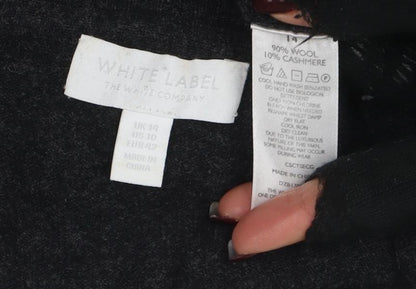 WHITE LABEL
THE WHITE COMPANY
UK 14
US 10
EUR 42
MADE IN
CHINA
14
90% WOOL
10% CASHMERE
COOL HAND WASH SEPARATELY
DO NOT USE BIOLOGICAL
DETERGENT
DO NOT
BLEACH
RESHAPE WHILST DAMP
DRY FLAT
COOL IRON
DRY CLEAN
DUE TO THE LUXURIOUS
NATURE OF THIS YARN
SOME PILLING MAY OCCUR
DURING WEAR
MADE IN CHINA